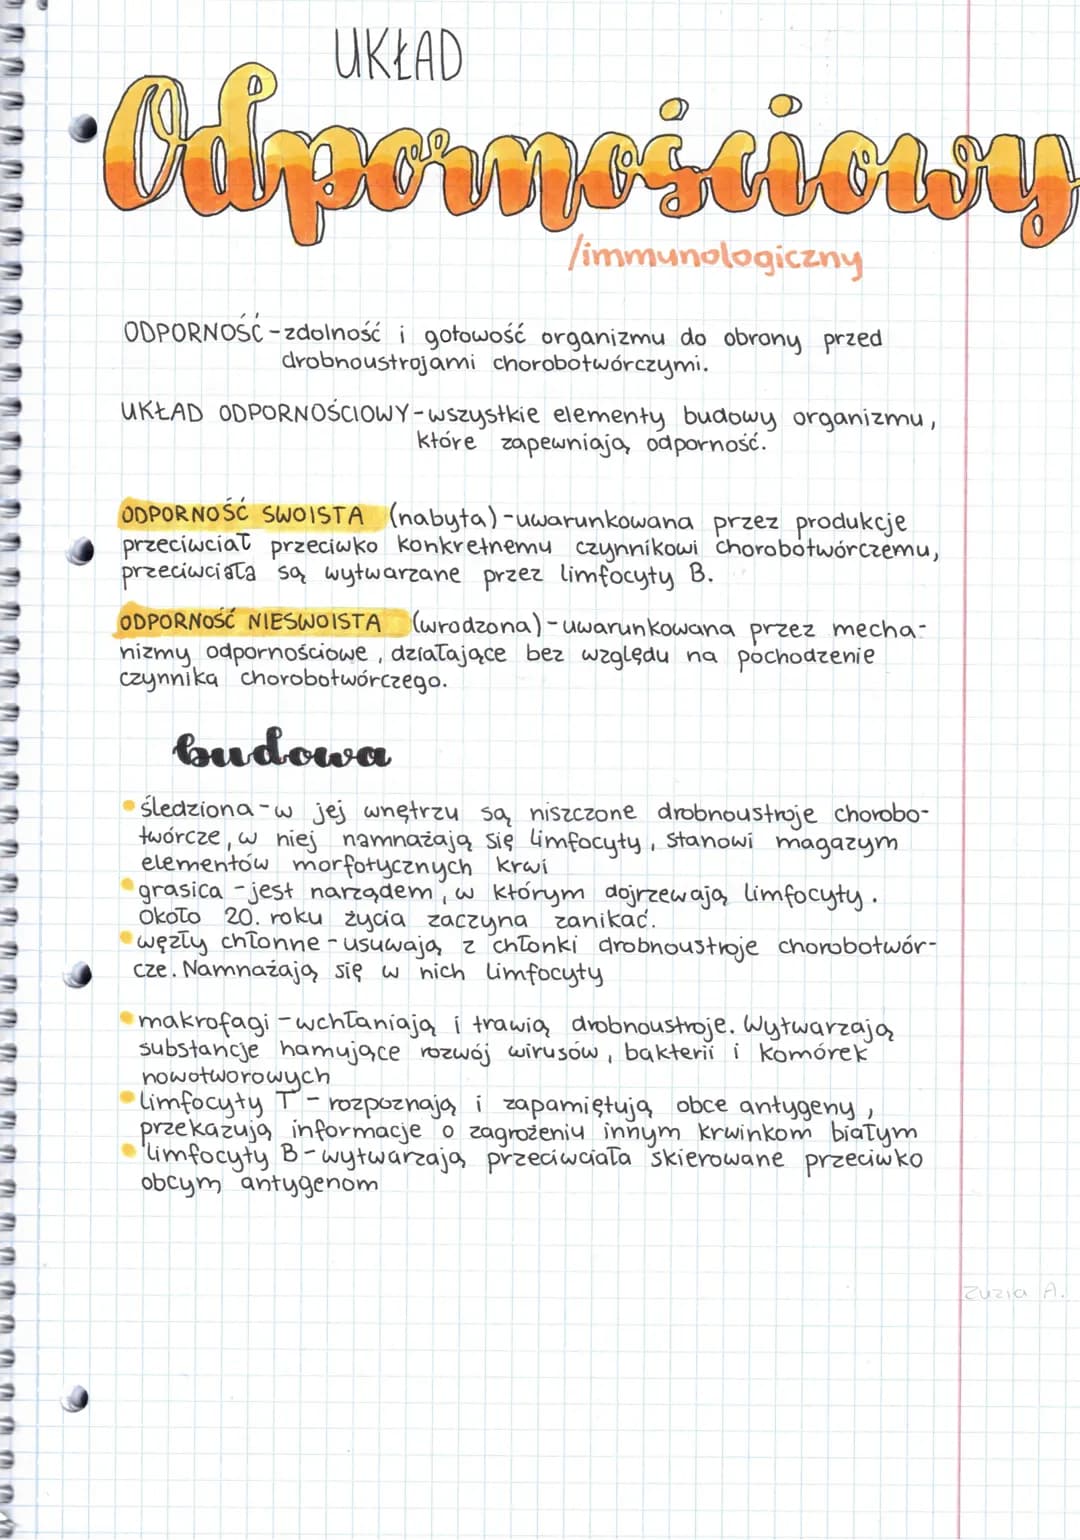 UKŁAD
Odpornościowy
/immunologiczny
ODPORNOŚĆ - zdolność i gotowość organizmu do obrony przed
drobnoustrojami chorobotwórczymi.
UKŁAD ODPORNOŚCIOWY - wszystkie elementy budowy organizmu,
które zapewniają odporność.
ODPORNOŚĆ SWOISTA (nabyta) - uwarunkowana przez produkcje
przeciwciał przeciwko konkretnemu czynnikowi chorobotwórczemu,
przeciwciała są wytwarzane przez limfocyty B.
ODPORNOŚĆ NIESWOISTA (wrodzona) - uwarunkowana przez mecha-
nizmy odpornościowe, działające bez względu na pochodzenie
czynnika chorobotwórczego.
budowa
• śledziona - w jej wnętrzu są niszczone drobnoustroje chorobo-
twórcze, w niej namnażają się limfocyty, stanowi magazym
elementów morfotycznych krwi
• grasica - jest narządem, w którym dojrzewają limfocyty.
około 20. roku życia zaczyna zanikać.
• węzły chłonne - usuwają z chłonki drobnoustroje chorobotwór-
cze. Namnażają się w nich limfocyty
• makrofagi - wchłaniają i trawią drobnoustroje. Wytwarzają
substancje hamujące rozwój wirusów, bakterii i komórek
nowotworowych
• limfocyty T - rozpoznają i zapamiętują obce antygeny,
przekazują informacje o zagrożeniu innym krwinkom białym
• limfocyty B - wytwarzają przeciwciała skierowane przeciwko
obcym antygenom
Zuzia A.